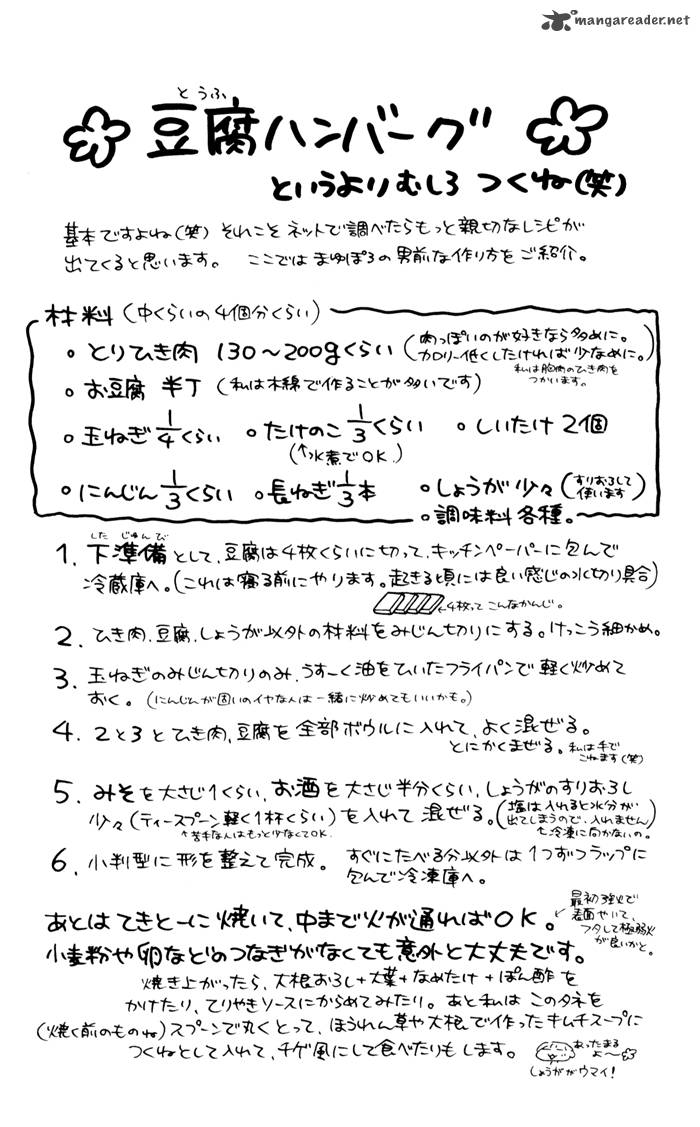 mangareader.net
とうふ
豆腐ハンバーグ
というよりむしろ つくね(笑)
基本ですよね(笑) それこそ ネットで調べたらもっと親切なレシピが
出てくると思います。 ここでは まゆぽろの男前な作り方をご紹介。
材料(中くらいの4個分くらい)
・とりひき肉 130〜200gくらい(肉っぽいのが好きなら多めに。
カロリー低くしたければ少なめに。)
私は胸肉のひき肉を
つかいます。
・お豆腐 半丁(私は木綿で作ることが多いです)
・玉ねぎ 1/4くらい ・たけのこ 1/3くらい ・しいたけ 2個
(↑水煮でOK.)
・にんじん 1/3くらい ・長ねぎ 1/3本 ・しょうが少々(すりおろして
使います)
・調味料各種。
したじゅんび
1. 下準備として、豆腐は4枚くらいに切って、キッチンペーパーに包んで
冷蔵庫へ。(これは寝る前にやります。起きる頃には良い感じの水切り具合)
←4枚って こんなかんじ。
2. ひき肉、豆腐、しょうが以外の材料をみじん切りにする。けっこう細かめ。
3. 玉ねぎのみじん切りのみ、うすーく油をひいたフライパンで軽く炒めて
おく。(にんじんが固いのイヤな人は一緒に炒めてもいいかも。)
4. 2と3とひき肉、豆腐を全部ボウルに入れて、よく混ぜる。
とにかくまぜる。私は手で
こねます(笑)
5. みそを大さじ1くらい、お酒を大さじ半分くらい、しょうがのすりおろし
少々(ティースプーン軽く1杯くらい)を入れて混ぜる。(塩は入れると水分が
出てしまうので、入れません)
↑苦手な人はもっと少なくてOK.
↑冷凍に向かないの。
6. 小判型に形を整えて完成。 すぐにたべる分以外は1つずつラップに
包んで冷凍庫へ。
あとはてきとーに焼いて、中まで火が通ればOK。
最初強火で
表面やいて、
フタして極弱火
が良いかと。
小麦粉や卵などのつなぎがなくても意外と大丈夫です。
焼き上がったら、大根おろし+大葉+なめたけ+ぽん酢を
かけたり、てりやきソースにからめてみたり。あと私はこのタネを
(焼く前のものね)スプーンで丸くとって、ほうれん草や大根で作ったキムチスープに
つくねとして入れて、チゲ風にして食べたりもします。
あったまる
よ〜
しょうががウマイ!